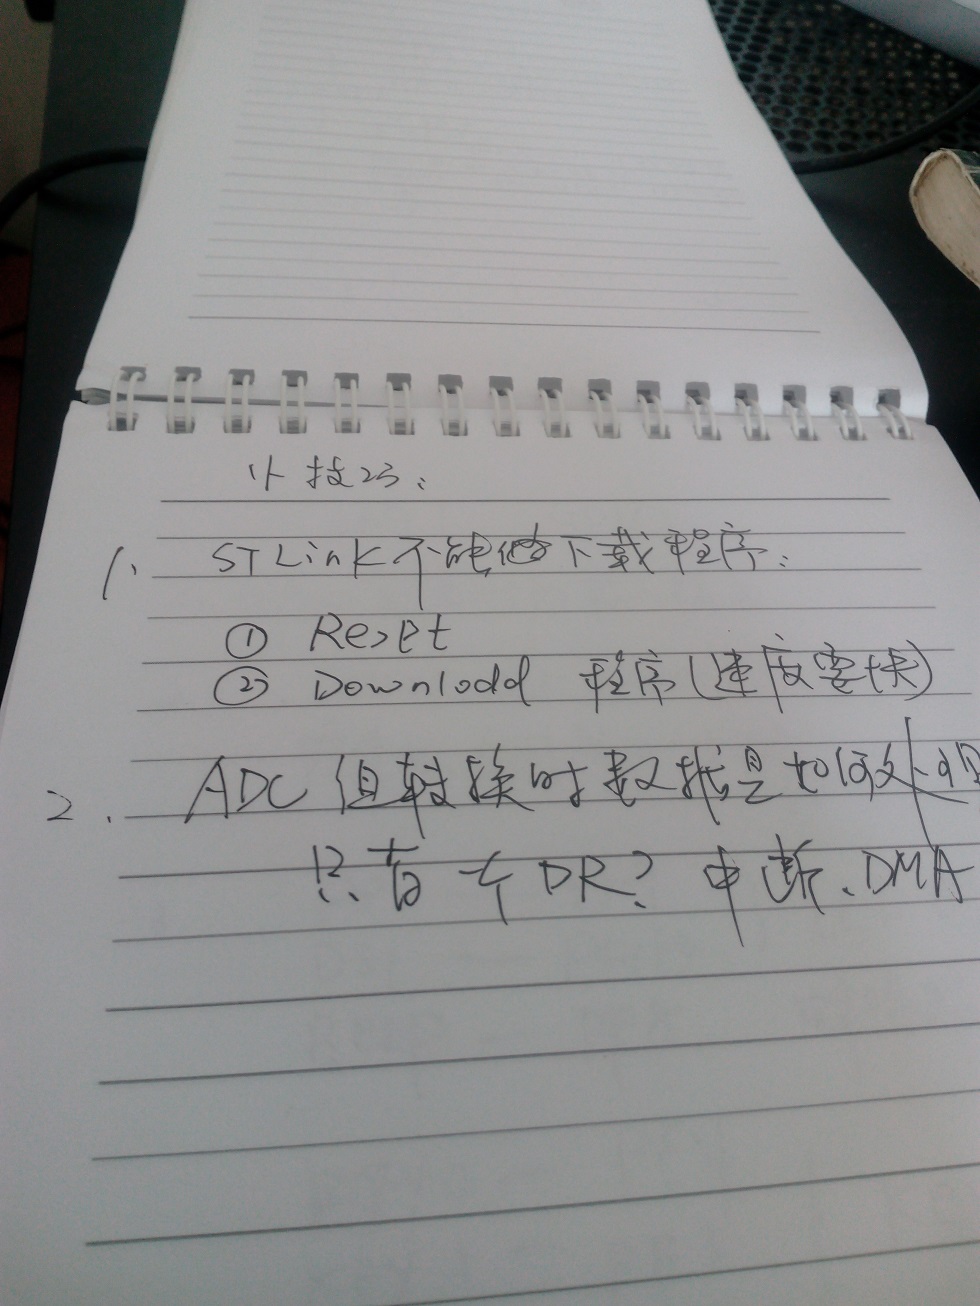 小技巧:
1. STLink不能够下载程序:
① Reset
② Download 程序(速度要快)
2. ADC 组转换时数据是如何处
只有一个DR? 中断、DMA